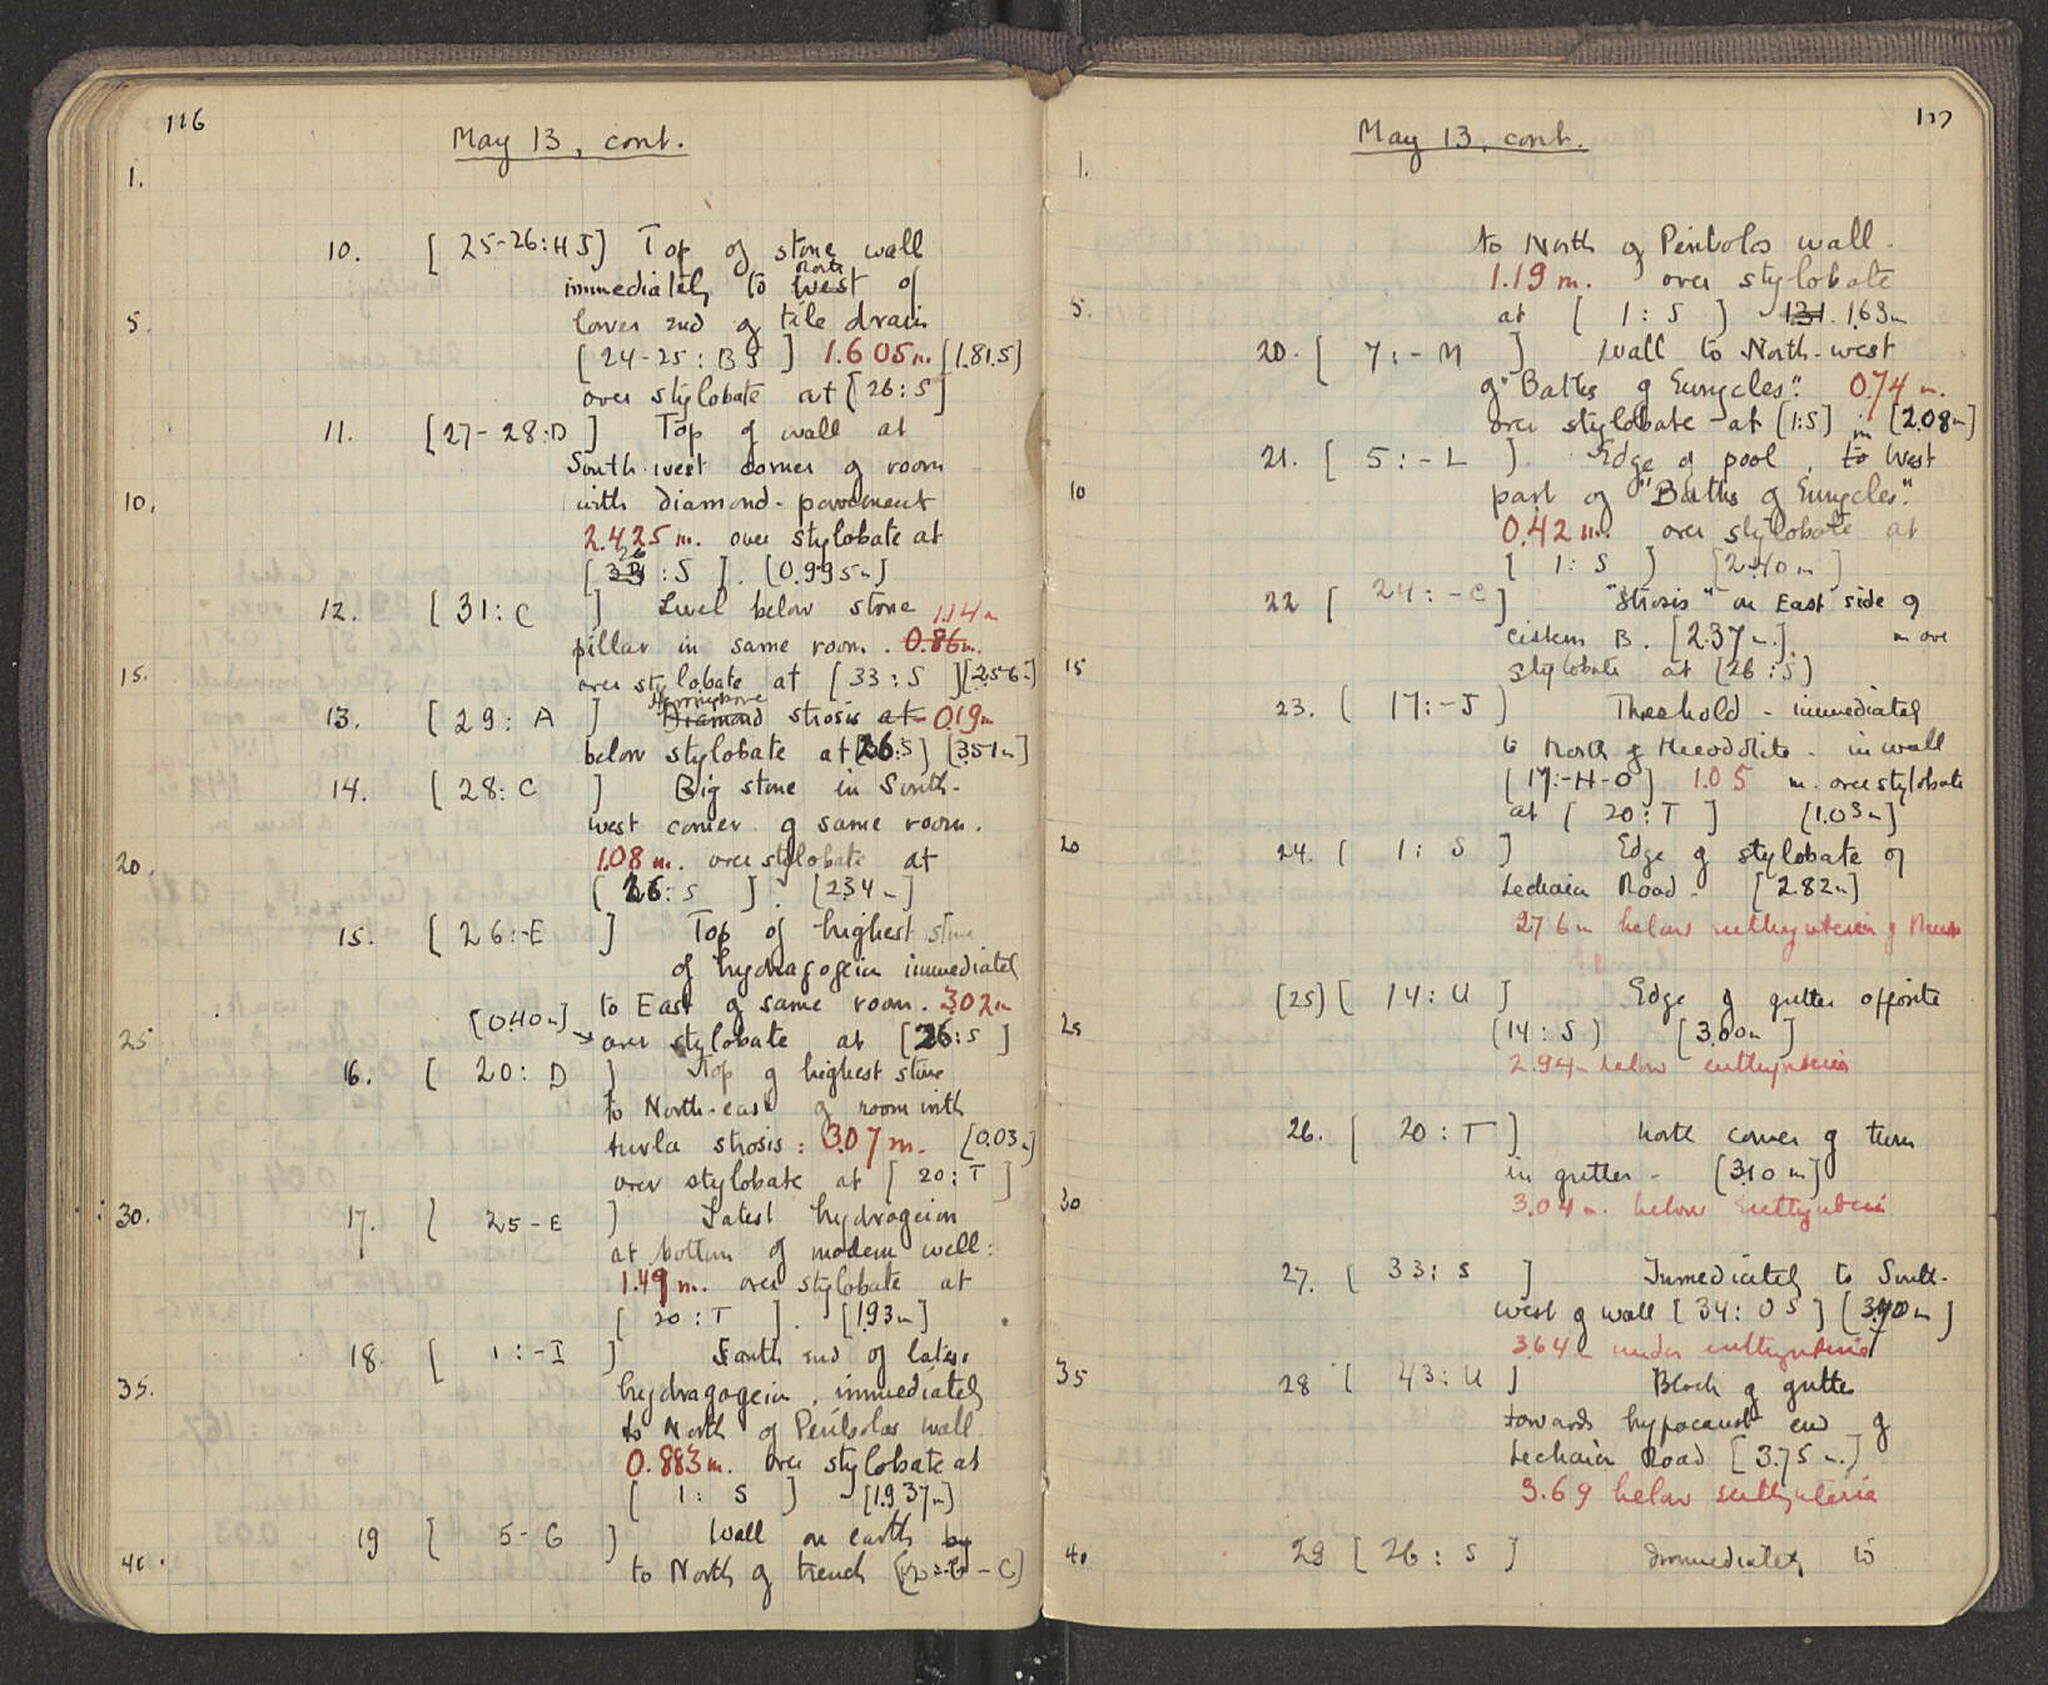 116
May 13, cont.
1.
10. [25-26:HS] Top of stone wall
north
immediately to west of
5. lower end of tile drain
[24-25:BS] 1.605 m. [1.815]
over stylobate at [26:S]
11. [27-28:D] Top of wall at
South-west corner of room
10. with diamond-pavement
2.425 m. over stylobate at
26
[33:S]. [0.995 m]
12. [31:C] Level below stone 1.14 m
pillar in same room. 0.86 m.
15. over stylobate at [33:S] [2.56 m]
13. [29:A] Diamond strosis at 0.19 m
below stylobate at [26:S] [3.51 m]
14. [28:C] Big stone in South-
west corner of same room.
20. 1.08 m. over stylobate at
[26:S]. [2.34 m]
15. [26:-E] Top of highest stone
of hydragogeion immediately
to East of same room. 3.02 m
[0.40 m]
25. over stylobate at [26:S]
16. [20:D] Top of highest stone
to North-east of room with
turla strosis: 3.07 m. [0.03 m]
over stylobate at [20:T]
30. 17. [25-E] Latest hydrogeion
at bottom of modern well:
1.49 m. over stylobate at
[20:T]. [1.93 m]
18. [1:-I] South end of latest
35. hydragogeion, immediately
to North of Peribolos wall.
0.883 m. over stylobate at
[1:S] [1.937 m]
19 [5-G] Wall on earth by
40. to North of trench
117
May 13, cont.
1.
to North of Peribolos wall.
1.19 m. over stylobate
5. at [1:S] 1.31. 1.63 m
20. [7:-M] Wall to North-west
of "Baths of Eurycles". 0.74 m.
over stylobate at [1:S] in [2.08 m]
21. [5:-L] Edge of pool, to West
10 part of "Baths of Eurycles".
0.42 m. over stylobate at
[1:S] [2.40 m]
22 [24:-C] "Strosis" on East side of
cistern B. [2.37 m.]. m over
15 stylobate at [26:S]
23. [17:-J] Threshold - immediately
to North of theodolite - in wall
[17:-H-O] 1.05 m. over stylobate
at [20:T] [1.03 m]
20 24. [1:S] Edge of stylobate of
Lechaion Road - [2.82 m]
2.76 m below euthynteria of
[25] [14:U] Edge of gutter opposite
25 [14:S] [3.00 m]
2.94 m below euthynteria
26. [20:T] North corner of turn
in gutter - [3.10 m]
30 3.04 m. below Euthynteria
27. [33:S] Immediately to South-
west of wall [34:OS] [3.70 m]
3.64 m under euthynteria
35 28 [43:U] Block of gutter
towards hypocaust end of
Lechaion Road [3.75 m.]
3.69 below euthynteria
40 29 [26:S] Immediately to